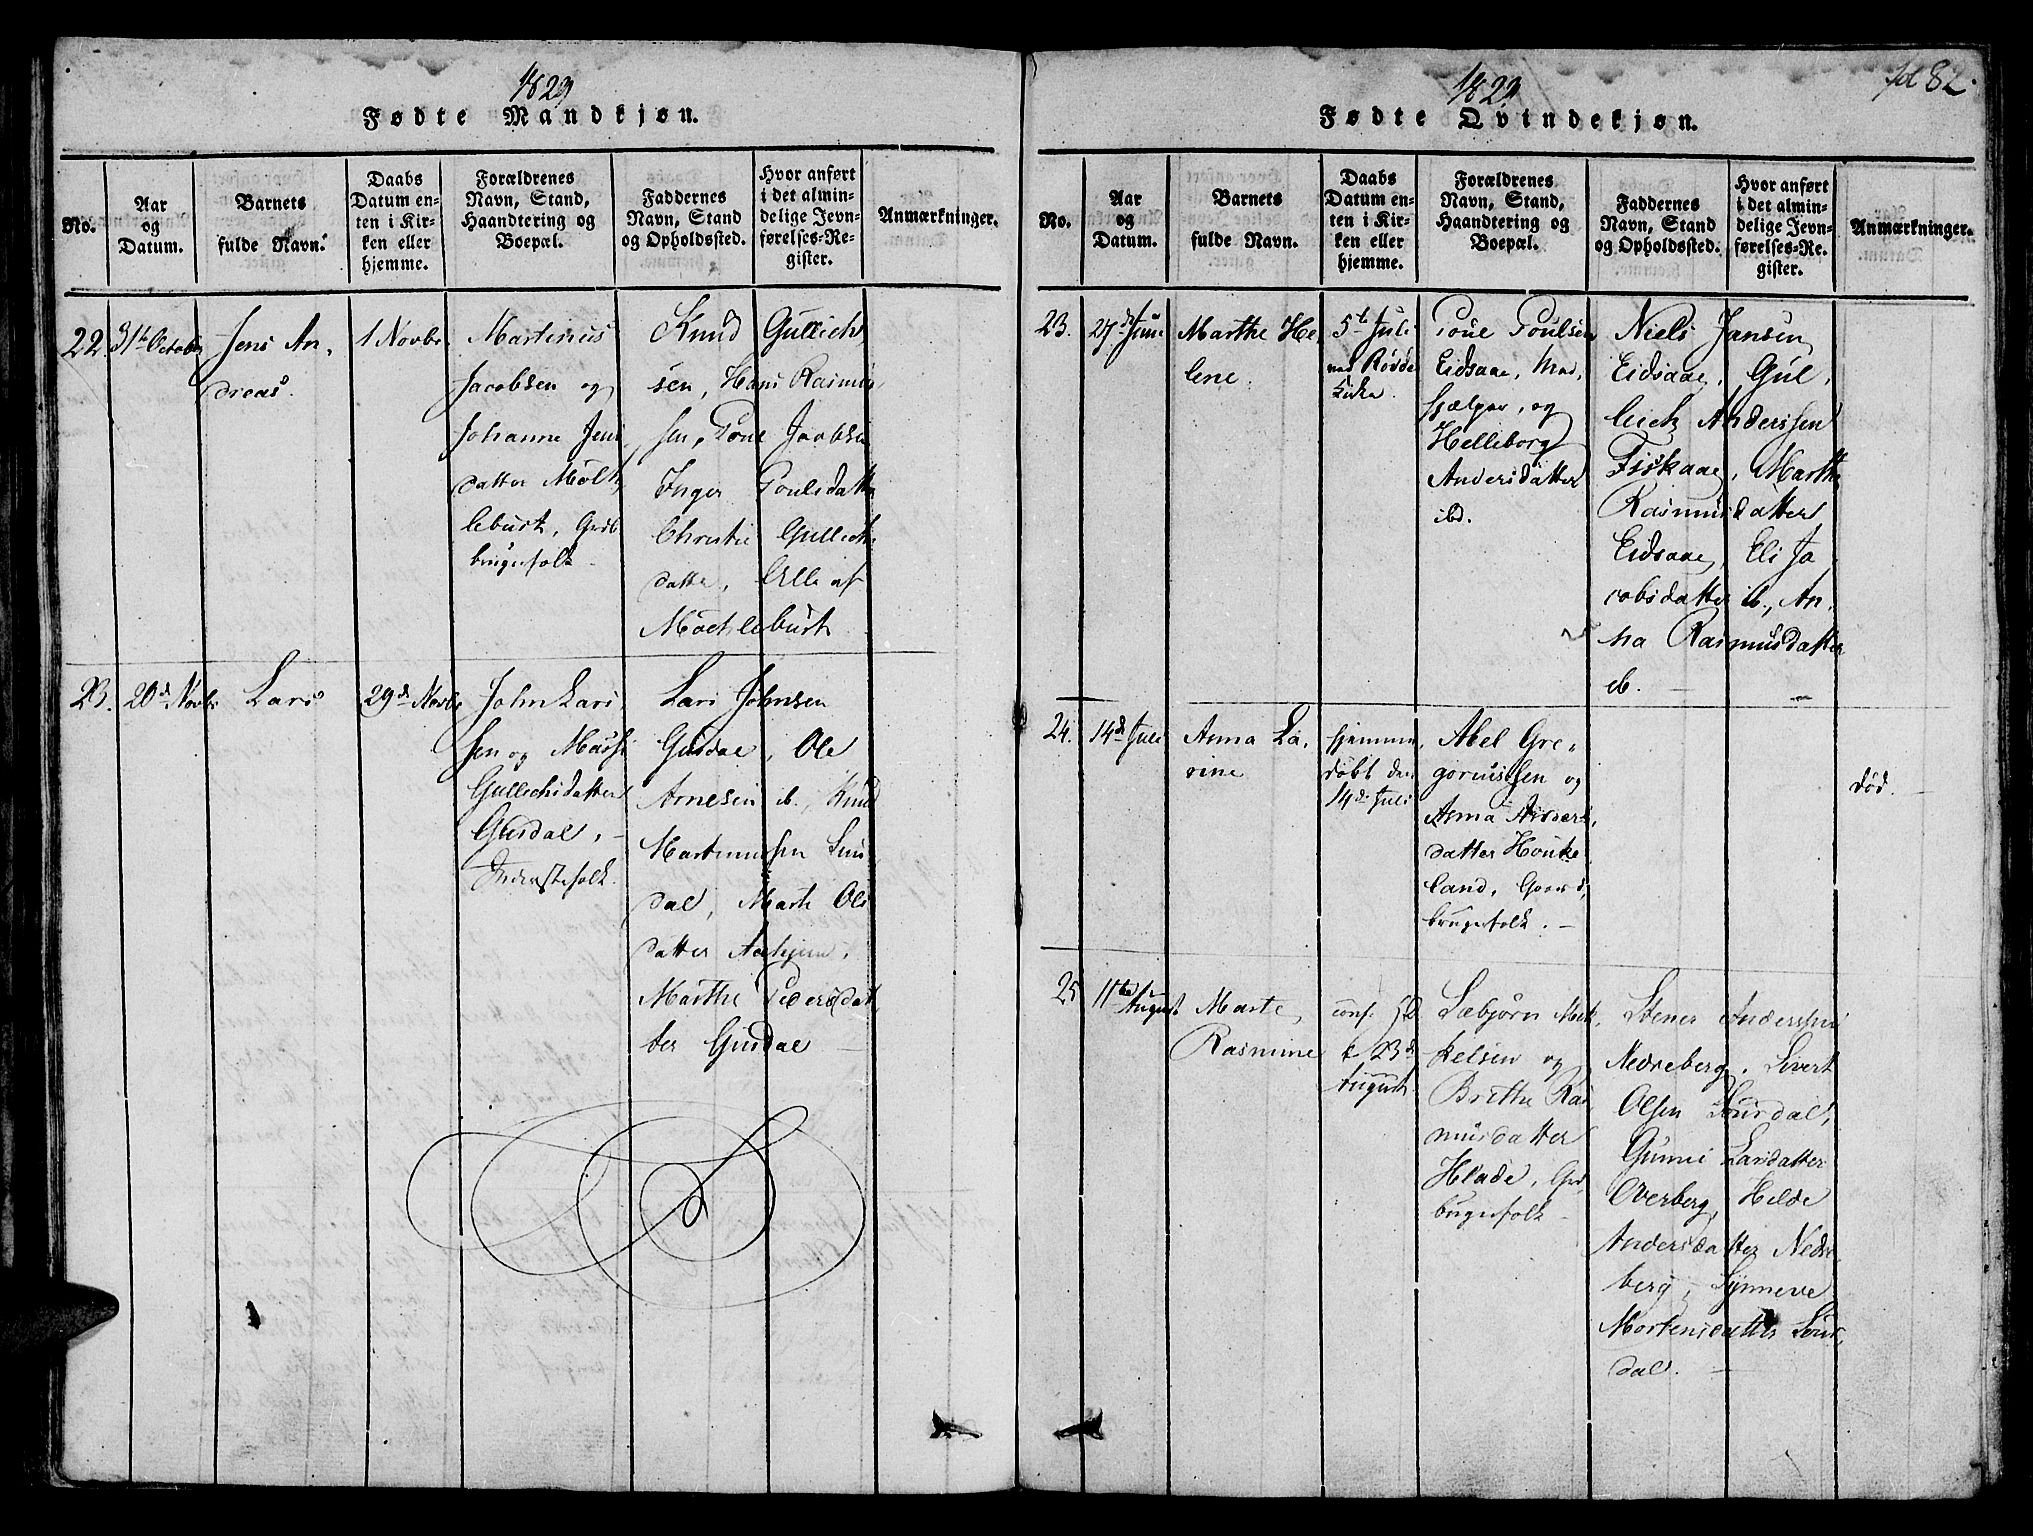 1829
Fødte Mandkjøn.
No.
Aar
og
Datum.
Barnets
fulde Navn.
Daabs
Datum en-
ten i Kir-
ken eller
hjemme.
Forældrenes
Navn, Stand,
Haandtering og
Boepæl.
Faddernes
Navn, Stand
og Opholdssted.
Hvor anført
i det almin-
delige Jevn-
førelses-Re-
gister.
Anmærkninger.
22
31te Octobr
Jens An-
dreas.
1 Novbr
Martinus
Jacobsen og
Johanne Jens
datter
lebust, Grd
brugerfolk
Knud Gullich
sen, Hans Rasmu
sen, Poul Jacobsen
Inger Poulsdatter
Christi Gullichs
datter, Alle af
Mochlebust
23.
20de Novbr
Lars
29de Novbr
John Lars
sen og
Gullichsdatter
Gusdal,
Inderstefolk.
Lars Johnsen
Gusdal, Ole
Arnesen ib., Knud
Martinussen
dal, Marte Ols
datter
Marthe Pedersdat
ter Gusdal
1829
fol 82.
Fødte Qvindekjøn.
No.
Aar
og
Datum.
Barnets
fulde Navn.
Daabs
Datum en-
ten i Kir-
ken eller
hjemme.
Forældrenes
Navn, Stand,
Haandtering og
Boepæl.
Faddernes
Navn, Stand
og Opholdssted.
Hvor anført
i det almin-
delige Jevn-
førelses-Re-
gister.
Anmærkninger.
23.
27de Juni
Marthe He-
lene.
5te Juli
ved Rovde
Kirke.
Poul Poulsen
Eidsaae,
og
Helleborg
Andersdatter
ibd.
Niels Jansen
Eidsaae, Gul-
leich Anderssen
Fiskaae, Marthe
Rasmusdatter
Eidsaae, Eli Ja
cobsdatter ib., An-
na Rasmusdatter
ib.
24.
14de Juli
Anna La-
rine
hjemme
døbt den
14de Juli
Abel Gre-
goriussen og
Anna
datter Houke
land, Gaard
brugerfolk.
død.
25
11te
August
Marte
Rasmine
conf.
d. 23de
August
Sæbjørn Mik
kelsen og
Brithe Ras
musdatter
Hlade, Grd
brugerfolk
Stener Anderssen
Nedreberg, Sivert
Olsen Sourdal,
Gunni Larsdatter
Overberg, Hilde
Andersdatter Nedre
berg, Synneve
Mortensdatter Sour
dal.